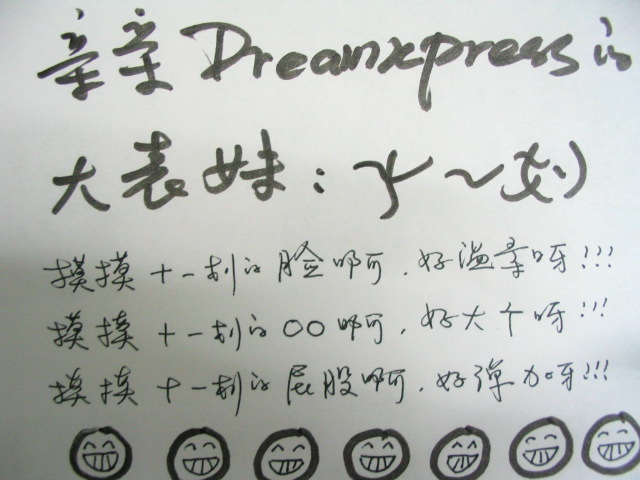 亲亲Dreamxpress的
大表妹：十一~划
摸摸十一划的脸啊啊，好温柔呀!!!
摸摸十一划的○○啊啊，好大个呀!!!
摸摸十一划的屁股啊啊，好弹力呀!!!